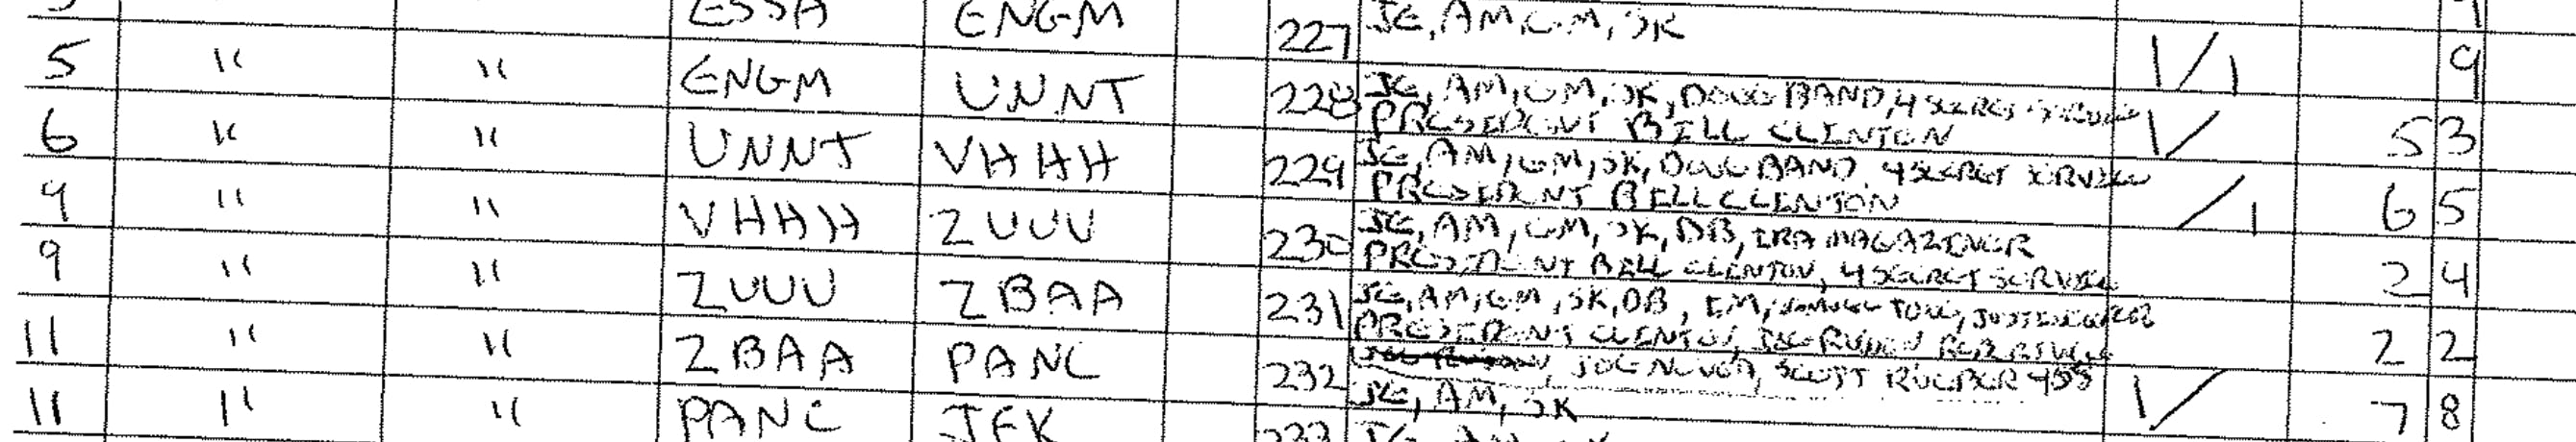 ESSA ENGM 227 JE, AM, GM, SK
5 " " ENGM UNNT 228 JE, AM, GM, SK, DOUG BAND, 4 SECRET SERVICE 1/1 9
PRESIDENT BILL CLINTON
6 " " UNNT VHHH 229 JE, AM, GM, SK, DOUG BAND, 4 SECRET SERVICE 1/ 5 3
PRESIDENT BILL CLINTON
9 " " VHHH ZUUU 230 JE, AM, GM, SK, DB, IRA MAGAZINER /1 6 5
PRESIDENT BILL CLINTON, 4 SECRET SERVICE
9 " " ZUUU ZBAA 231 JE, AM, GM, SK, DB, IM, 2 4
PRESIDENT CLINTON,
11 " " ZBAA PANC 232 JE, AM, SK 2 2
11 " " PANC JFK 1/ 7 8